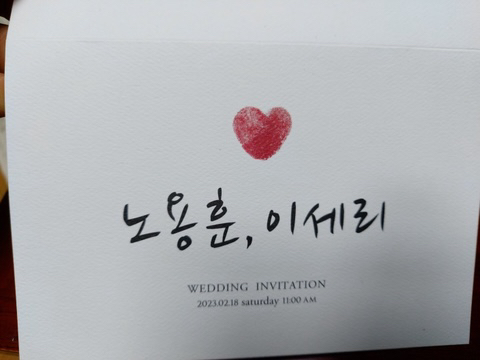 노용훈, 이세리
WEDDING INVITATION
2023.02.18 saturday 11:00 AM